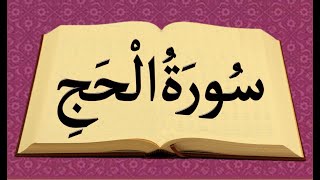 سُورَةُ الْحَجِ